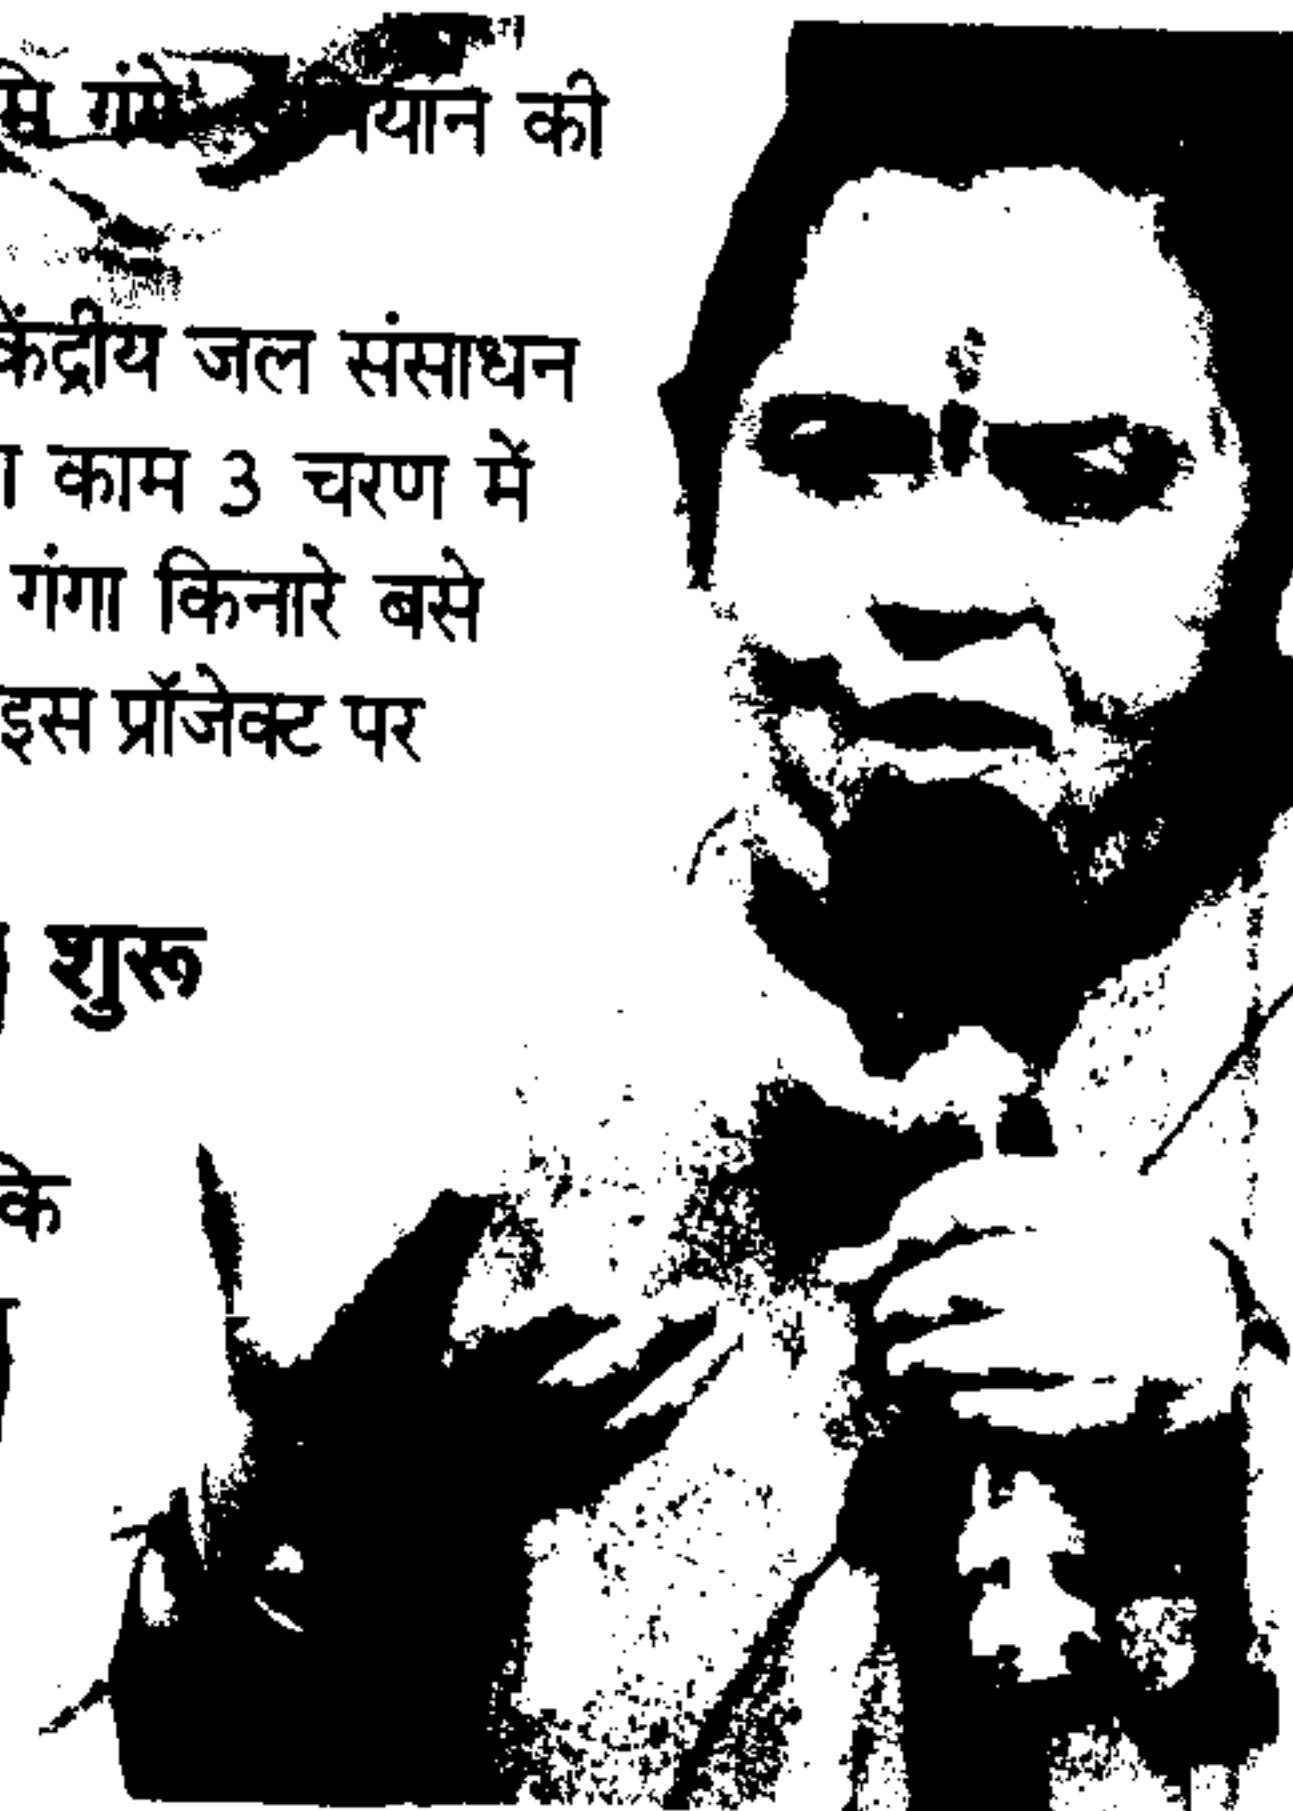 की
केंद्रीय जल संसाधन
काम 3 चरण में
गंगा किनारे बसे
इस प्रॉजेक्ट पर
शुरू
कि